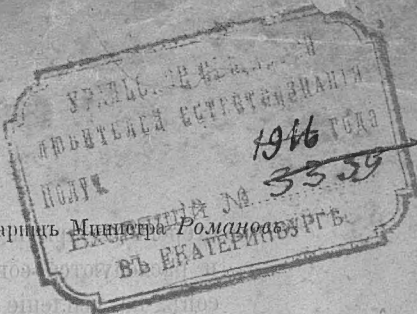 УРАЛЬС
ЛЮБИТЕЛЕЙ ЕСТЕСТВОЗНАНІЯ
ПОЛУЧ 1916 ГОДА
ВХОДЯЩІЙ № 3359
ВЪ ЕКАТЕРИНБУРГѢ.
арищъ Министра Романовъ.